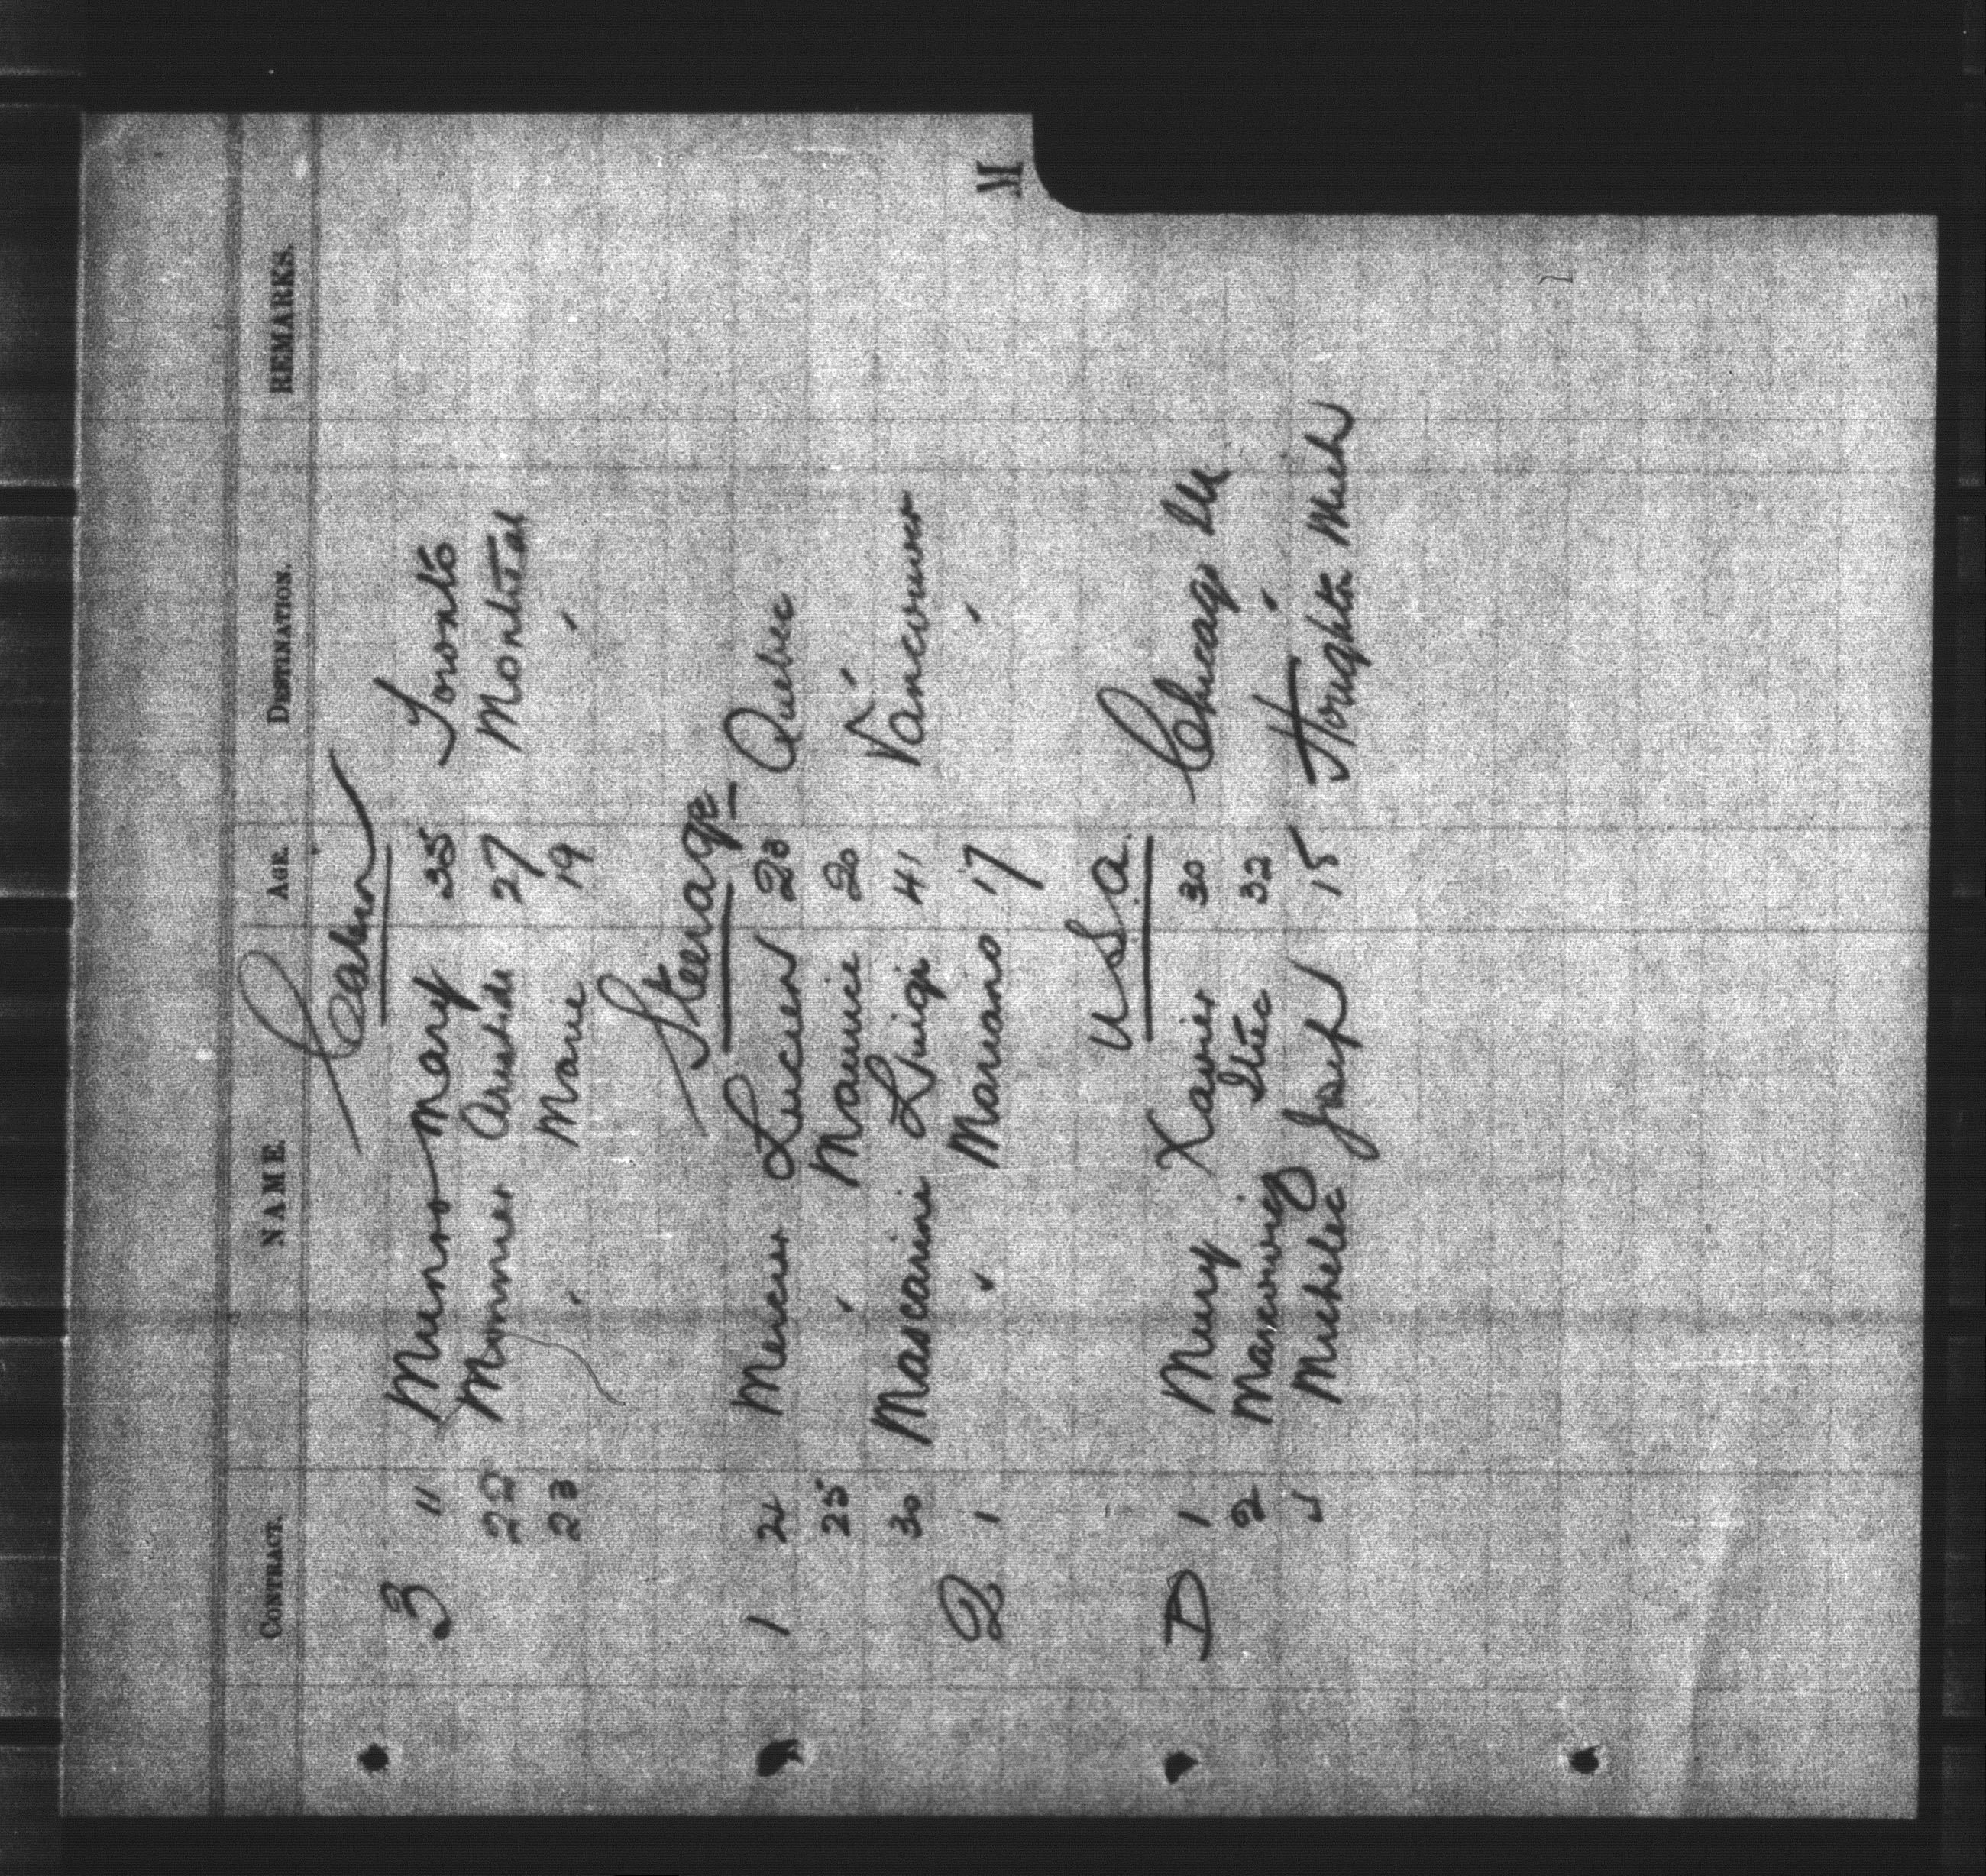 M
CONTRACT. NAME. AGE. DESTINATION. REMARKS.
Cabin
3 11 Munro Mary 35 Toronto
22 Monmer Aristide 27 Montreal
23 " Marie 19 "
Steerage
1 24 Mercier Lucien 20 Quebec
25 " Maurice 20 "
30 Mascarine Luigi 41 Vancouver
2 1 " Mariano 17 "
U.S.A.
D 1 Mury Xavier 30 Chicago Ill
2 32 "
5 Michelec Josef 15 Houghton Mich